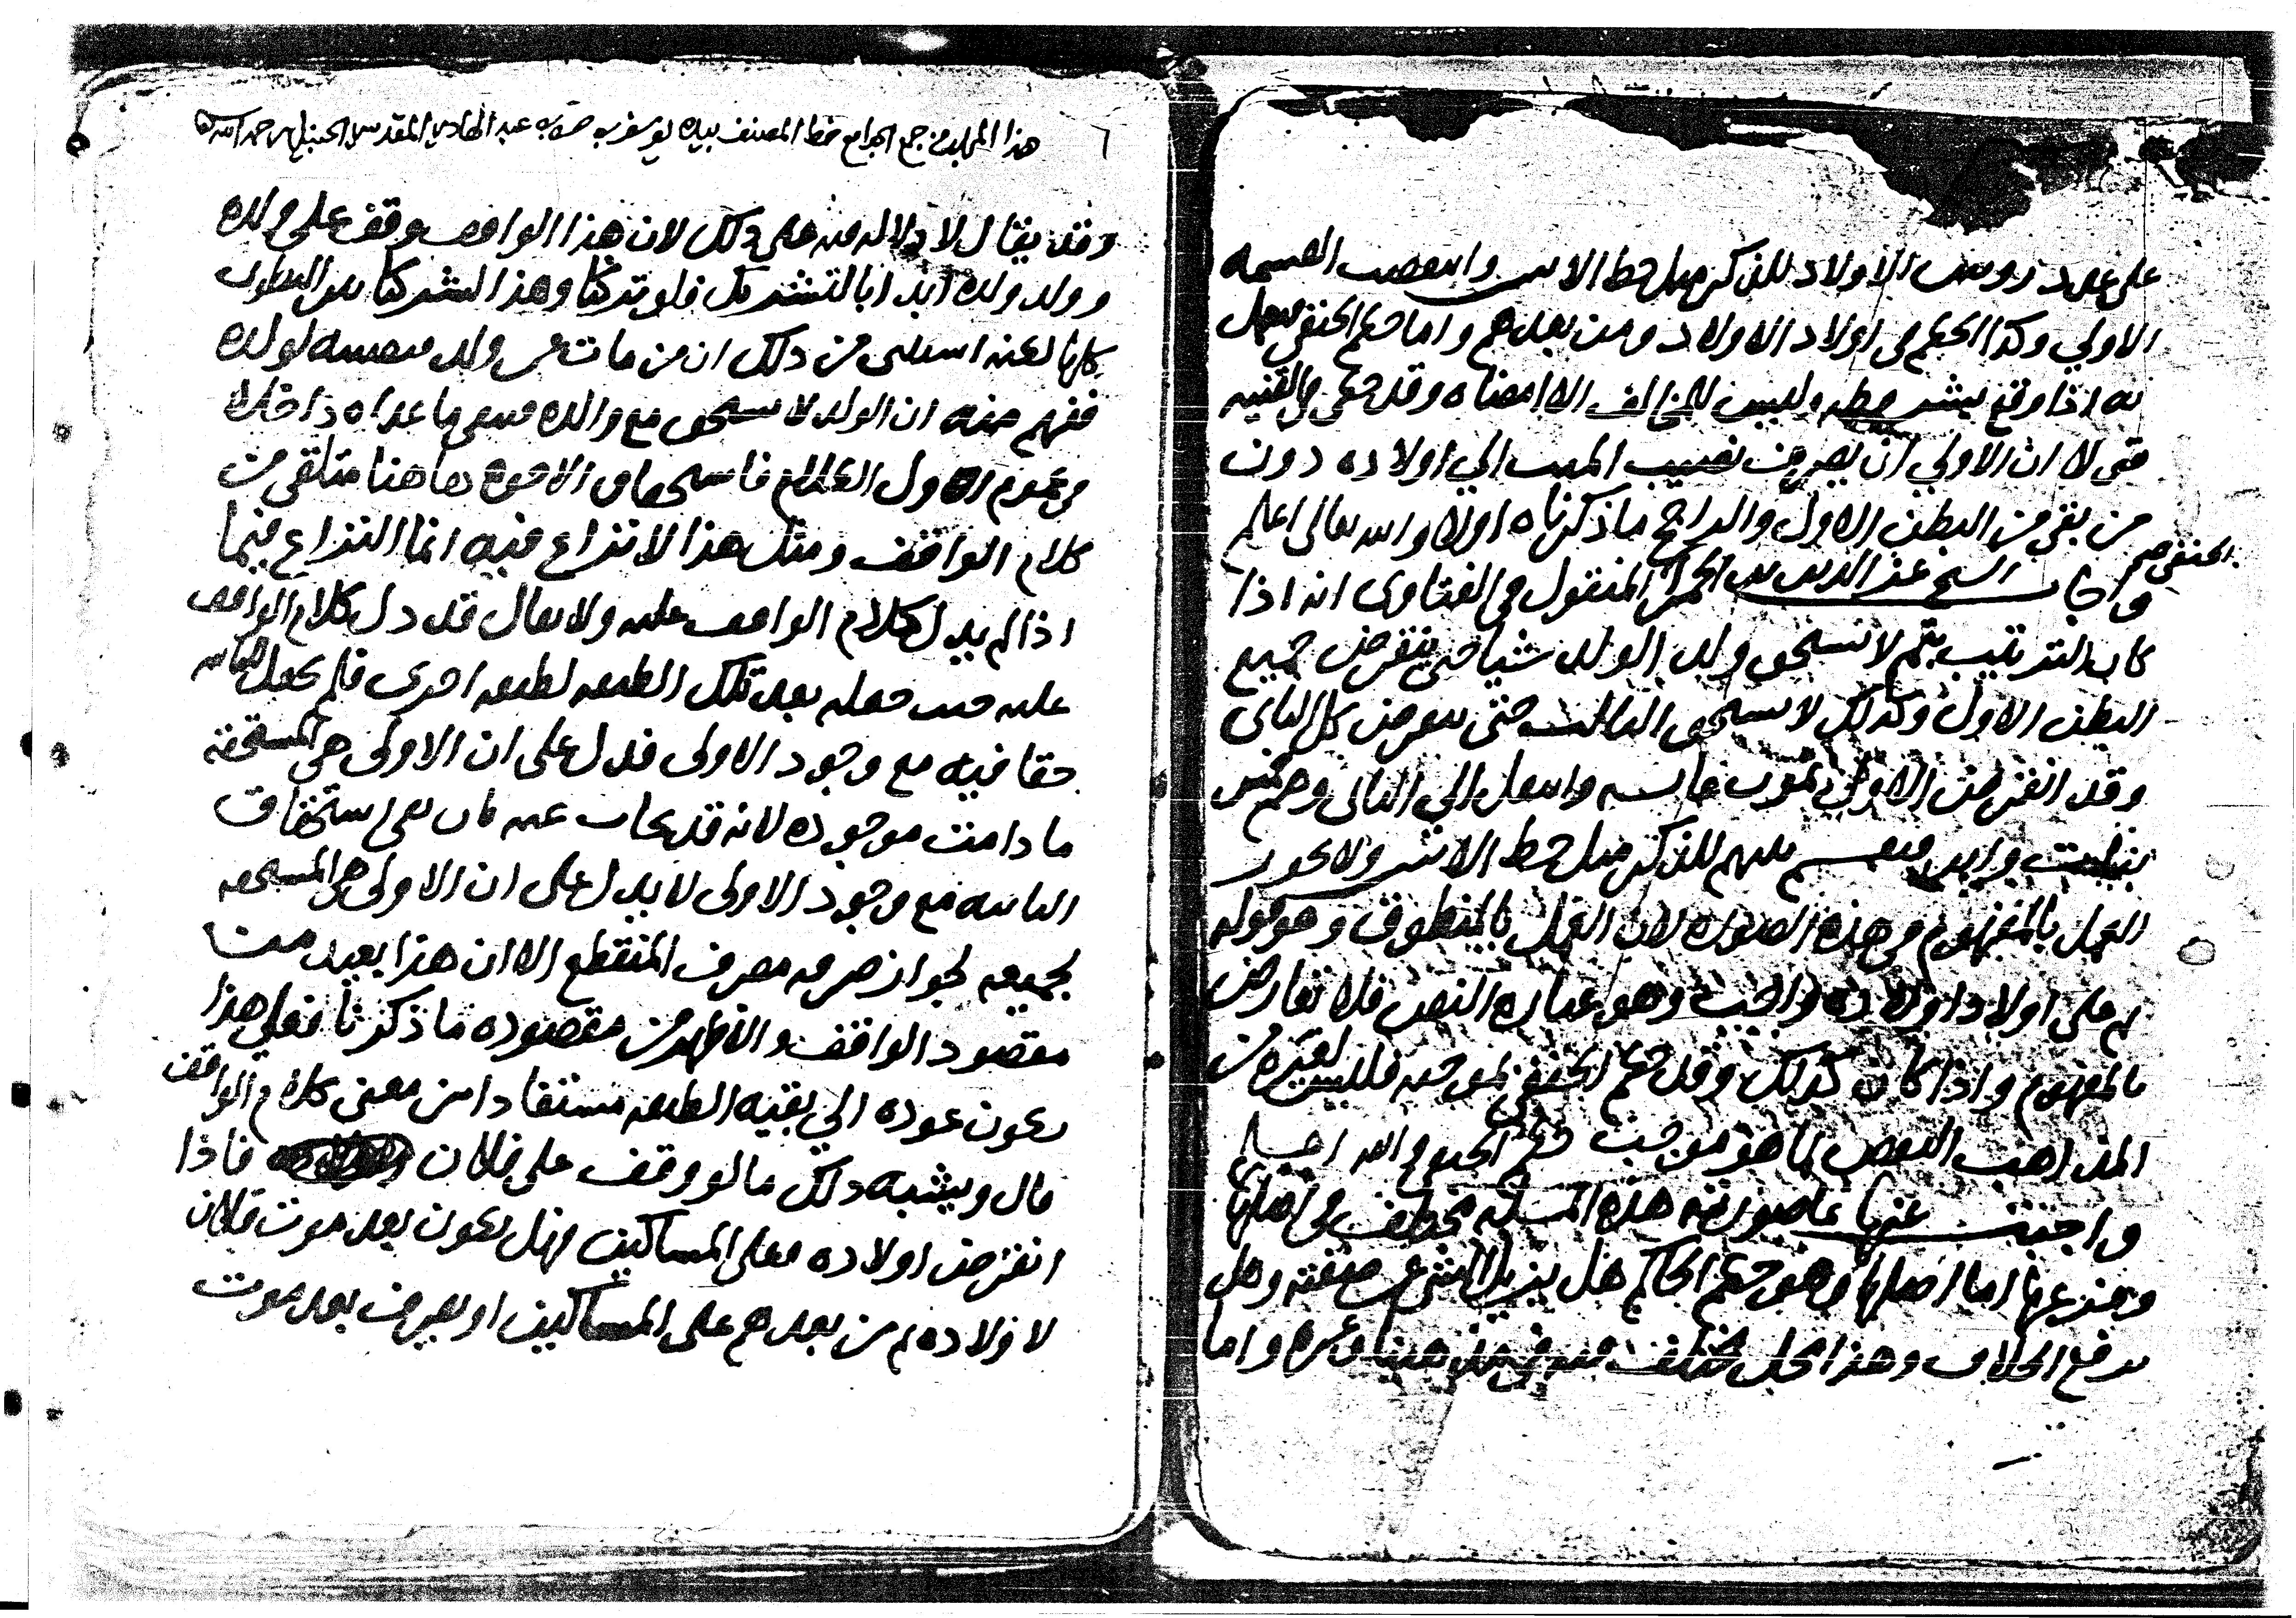 على عدد رووس الاولاد للذكر مثل حظ الانثيين وانتقضت القسمة
الاولي وكذا الحكم في اولاد الاولاد ومن بعدهم واما حكم الحنفي فيعمل
به اذا وقع بشرطه وليس للمخالف الا امضاه وقد حكى في القنيه
حتى لا ان الاولي ان يصرف نصيب الميت الي اولاده دون
من بقي من البطن الاول والراجح ما ذكرناه اولا والله تعالى اعلم
واجاب الشيخ عز الدين بن الحمرا الحنفي المنقول في الفتاوى انه اذا
كان الترتيب بثم لا يستحق ولد الولد شيا حتى ينقرض جميع
البطن الاول وكذلك لا يستحق الثالث حتى ينقرض كل الثاني
وقد انقرض الاول بموت عايشه وانتقل الي الثاني وهم خمس
بنات وابن فيقسم بينهم للذكر مثل حظ الانثيين ولا يجوز
العمل بالمفهوم في هذه الصوره لان العمل بالمنطوق وهو قوله
ثم على اولاد اولاده واجب وهو عباره النص فلا تعارض
بالمفهوم واذا كان كذلك وقد حكم الحنفي بموجبه فليس لغيره من
المذاهب التعرض لما هو موجب حكم الحنفي والله اعلم
واجبت عنها بما صورته هذه المسله مختلف في اصلها
وفرعها اما اصلها وهو حكم الحاكم هل يزيل الشي عن صفته وهل
يرفع الخلاف وهذا محل مختلف فيه في مذهبنا وغيره واما
هذا المجلد من جمع الجوامع خط المصنف بيده يوسف بن حسن بن عبد الهادي المقدسي الحنبلي رحمه الله
وقد يقال لا دلاله فيه على ذلك لان هذا الواقف وقف على ولده
وولد ولده ابدا بالتشريك فلو تركنا وهذا لشركنا بين البطون
كلها لكنه استثنى من ذلك ان من مات عن ولد فنصيبه لولده
ففهم منه ان الولد لا يستحق مع والده فبقي ما عداه داخلا
في عموم اول الكلام فاستحقاق الاخوه هاهنا متلقى من
كلام الواقف ومثل هذا لا نزاع فيه انما النزاع فيما
اذا لم يدل كلام الواقف عليه ولا يقال قد دل كلام الواقف
عليه حيث جعله بعد تلك الطبقه لطبقه اخرى فلم يجعل للثانيه
حقا فيه مع وجود الاولى فدل على ان الاولى هي المستحقه
ما دامت موجوده لانه قد يجاب عنه بان نفي استحقاق
الثانيه مع وجود الاولى لا يدل على ان الاولى هي المستحقه
لجميعه لجواز صرفه مصرف المنقطع الا ان هذا بعيد من
مقصود الواقف والاظهر من مقصوده ما ذكرنا فعلى هذا
يكون عوده الي بقيه الطبقه مستفادا من معنى كلام الواقف
قال ويشبه ذلك ما لو وقف على فلان فاذا
انقرض اولاده فعلى المساكين فهل يكون بعد موت فلان
لاولاده ثم من بعدهم على المساكين او يصرف بعد موت